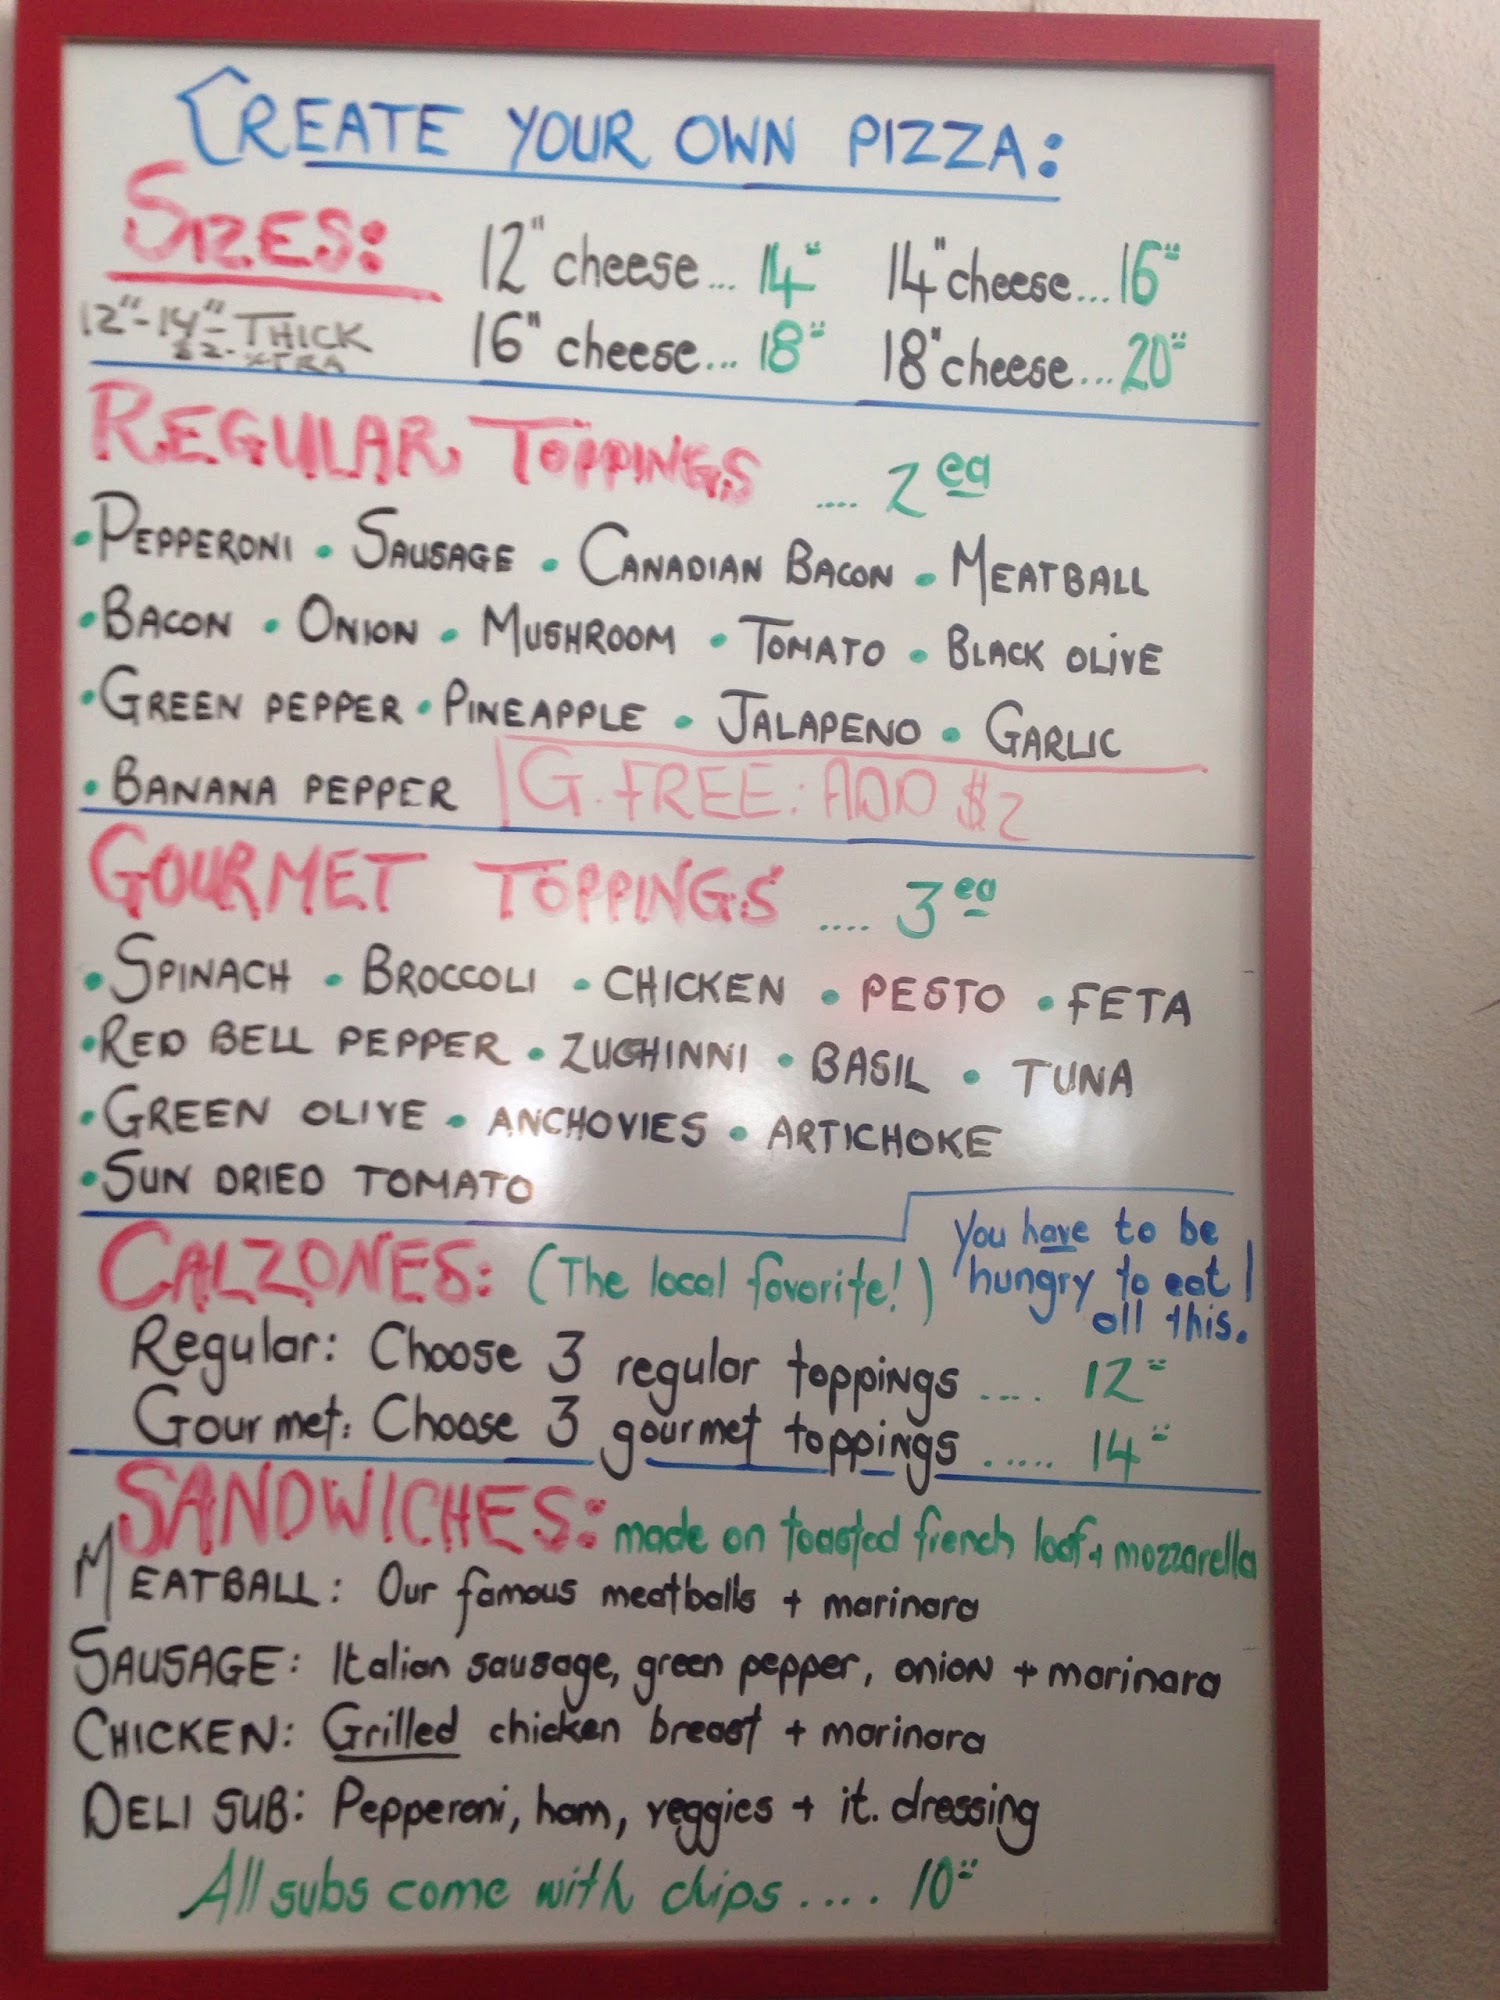 CREATE YOUR OWN PIZZA:
SIZES: 12" cheese... 14= 14" cheese... 16=
12"-14"- THICK 16" cheese... 18= 18" cheese... 20=
$2- XTRA
REGULAR TOPPINGS .... 2 ea
• PEPPERONI • SAUSAGE • CANADIAN BACON • MEATBALL
• BACON • ONION • MUSHROOM • TOMATO • BLACK OLIVE
• GREEN PEPPER • PINEAPPLE • JALAPENO • GARLIC
• BANANA PEPPER G. FREE: ADD $2
GOURMET TOPPINGS .... 3 ea
• SPINACH • BROCCOLI • CHICKEN • PESTO • FETA
• RED BELL PEPPER • ZUCHINNI • BASIL • TUNA
• GREEN OLIVE • ANCHOVIES • ARTICHOKE
• SUN DRIED TOMATO
CALZONES: (The local favorite!)
You have to be
hungry to eat
all this.
Regular: Choose 3 regular toppings .... 12=
Gourmet: Choose 3 gourmet toppings ..... 14=
SANDWICHES: made on toasted french loaf + mozzarella
MEATBALL: Our famous meatballs + marinara
SAUSAGE: Italian sausage, green pepper, onion + marinara
CHICKEN: Grilled chicken breast + marinara
DELI SUB: Pepperoni, ham, veggies + it. dressing
All subs come with chips .... 10=